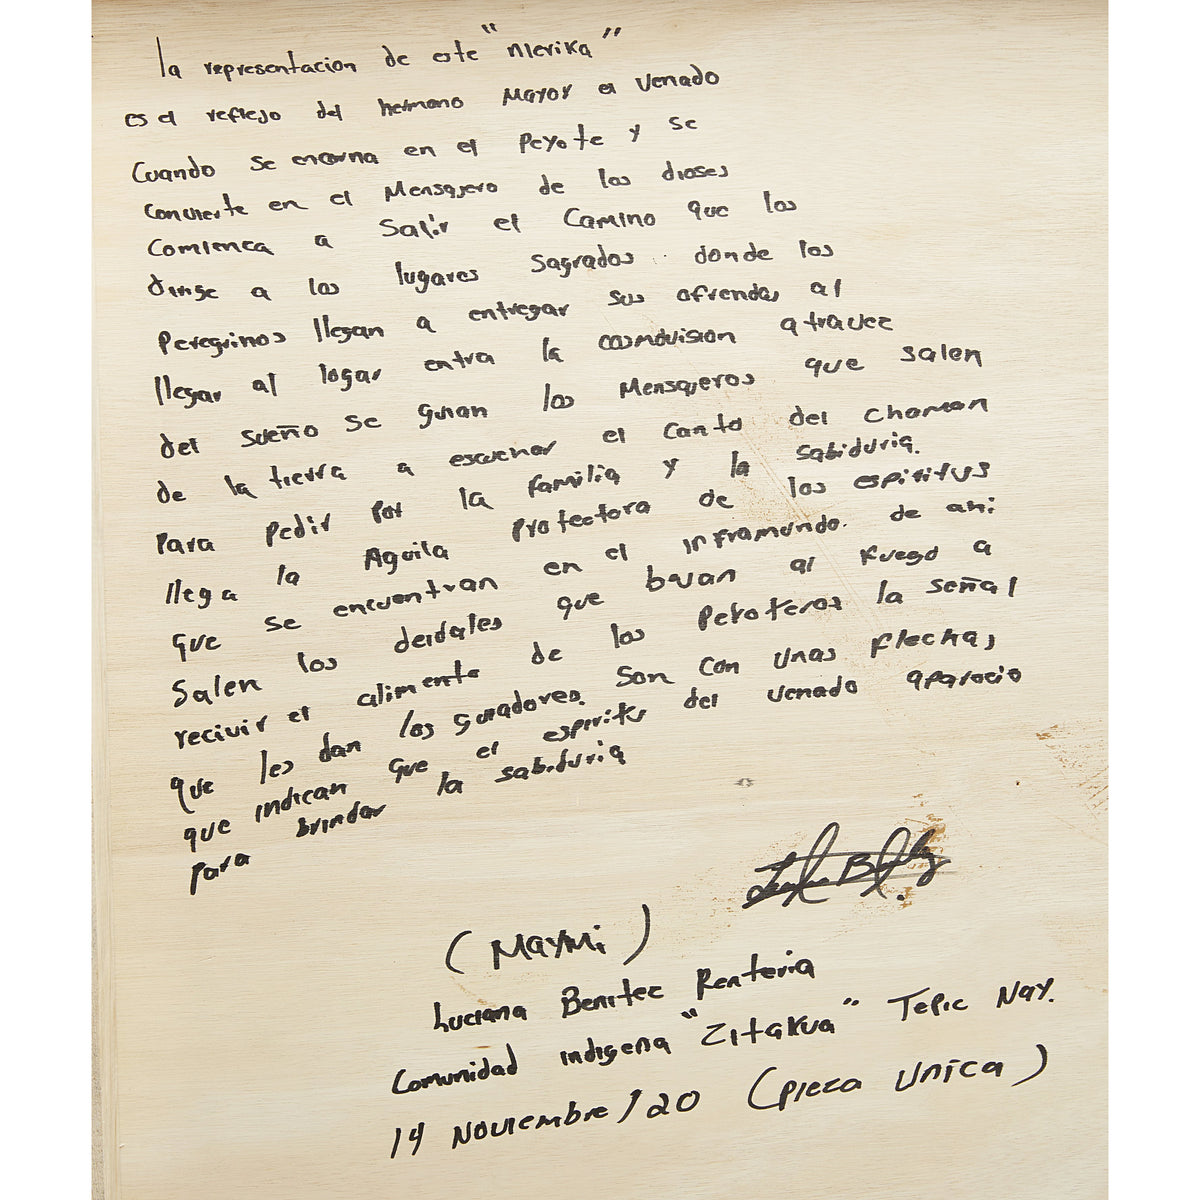 la representacion de este "Nierika"
es el reflejo del hermano Mayor el Venado
Cuando se encarna en el Peyote y se
Convierte en el Mensajero de los dioses
Comienca a Salir el Camino que los
dirige a los lugares Sagrados donde los
Peregrinos llegan a entregar sus ofrendas al
llegar al logar entra la cosmovision atravez
del sueño se guian los Mensajeros que salen
de la tierra a escuchar el Canto del Chaman
Para Pedir Por la familia y la Sabiduria.
llega la Aguila Protectora de los espiritus
que se encuentran en el inframundo. de ahi
Salen los deidales que bajan al fuego a
recivir el alimento de los Peyoteros la señal
que les dan los guiadores. Son Con Unas flechas
que indican que el espiritu del Venado aparecio
Para brindar la sabiduria
(Maymi)
Luciana Benitez Renteria
Comunidad indigena "Zitakua" Tepic Nay.
14 Noviembre/20 (Pieza Unica)